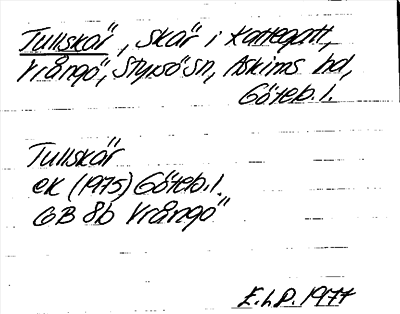 Tullskär, skär i Kattegatt,
Vrångö, Styrsö sn, Askims hd,
Göteb. l.
Tullskär
ek (1975) Göteb. l.
GB 8b Vrångö
E.h.P. 1977